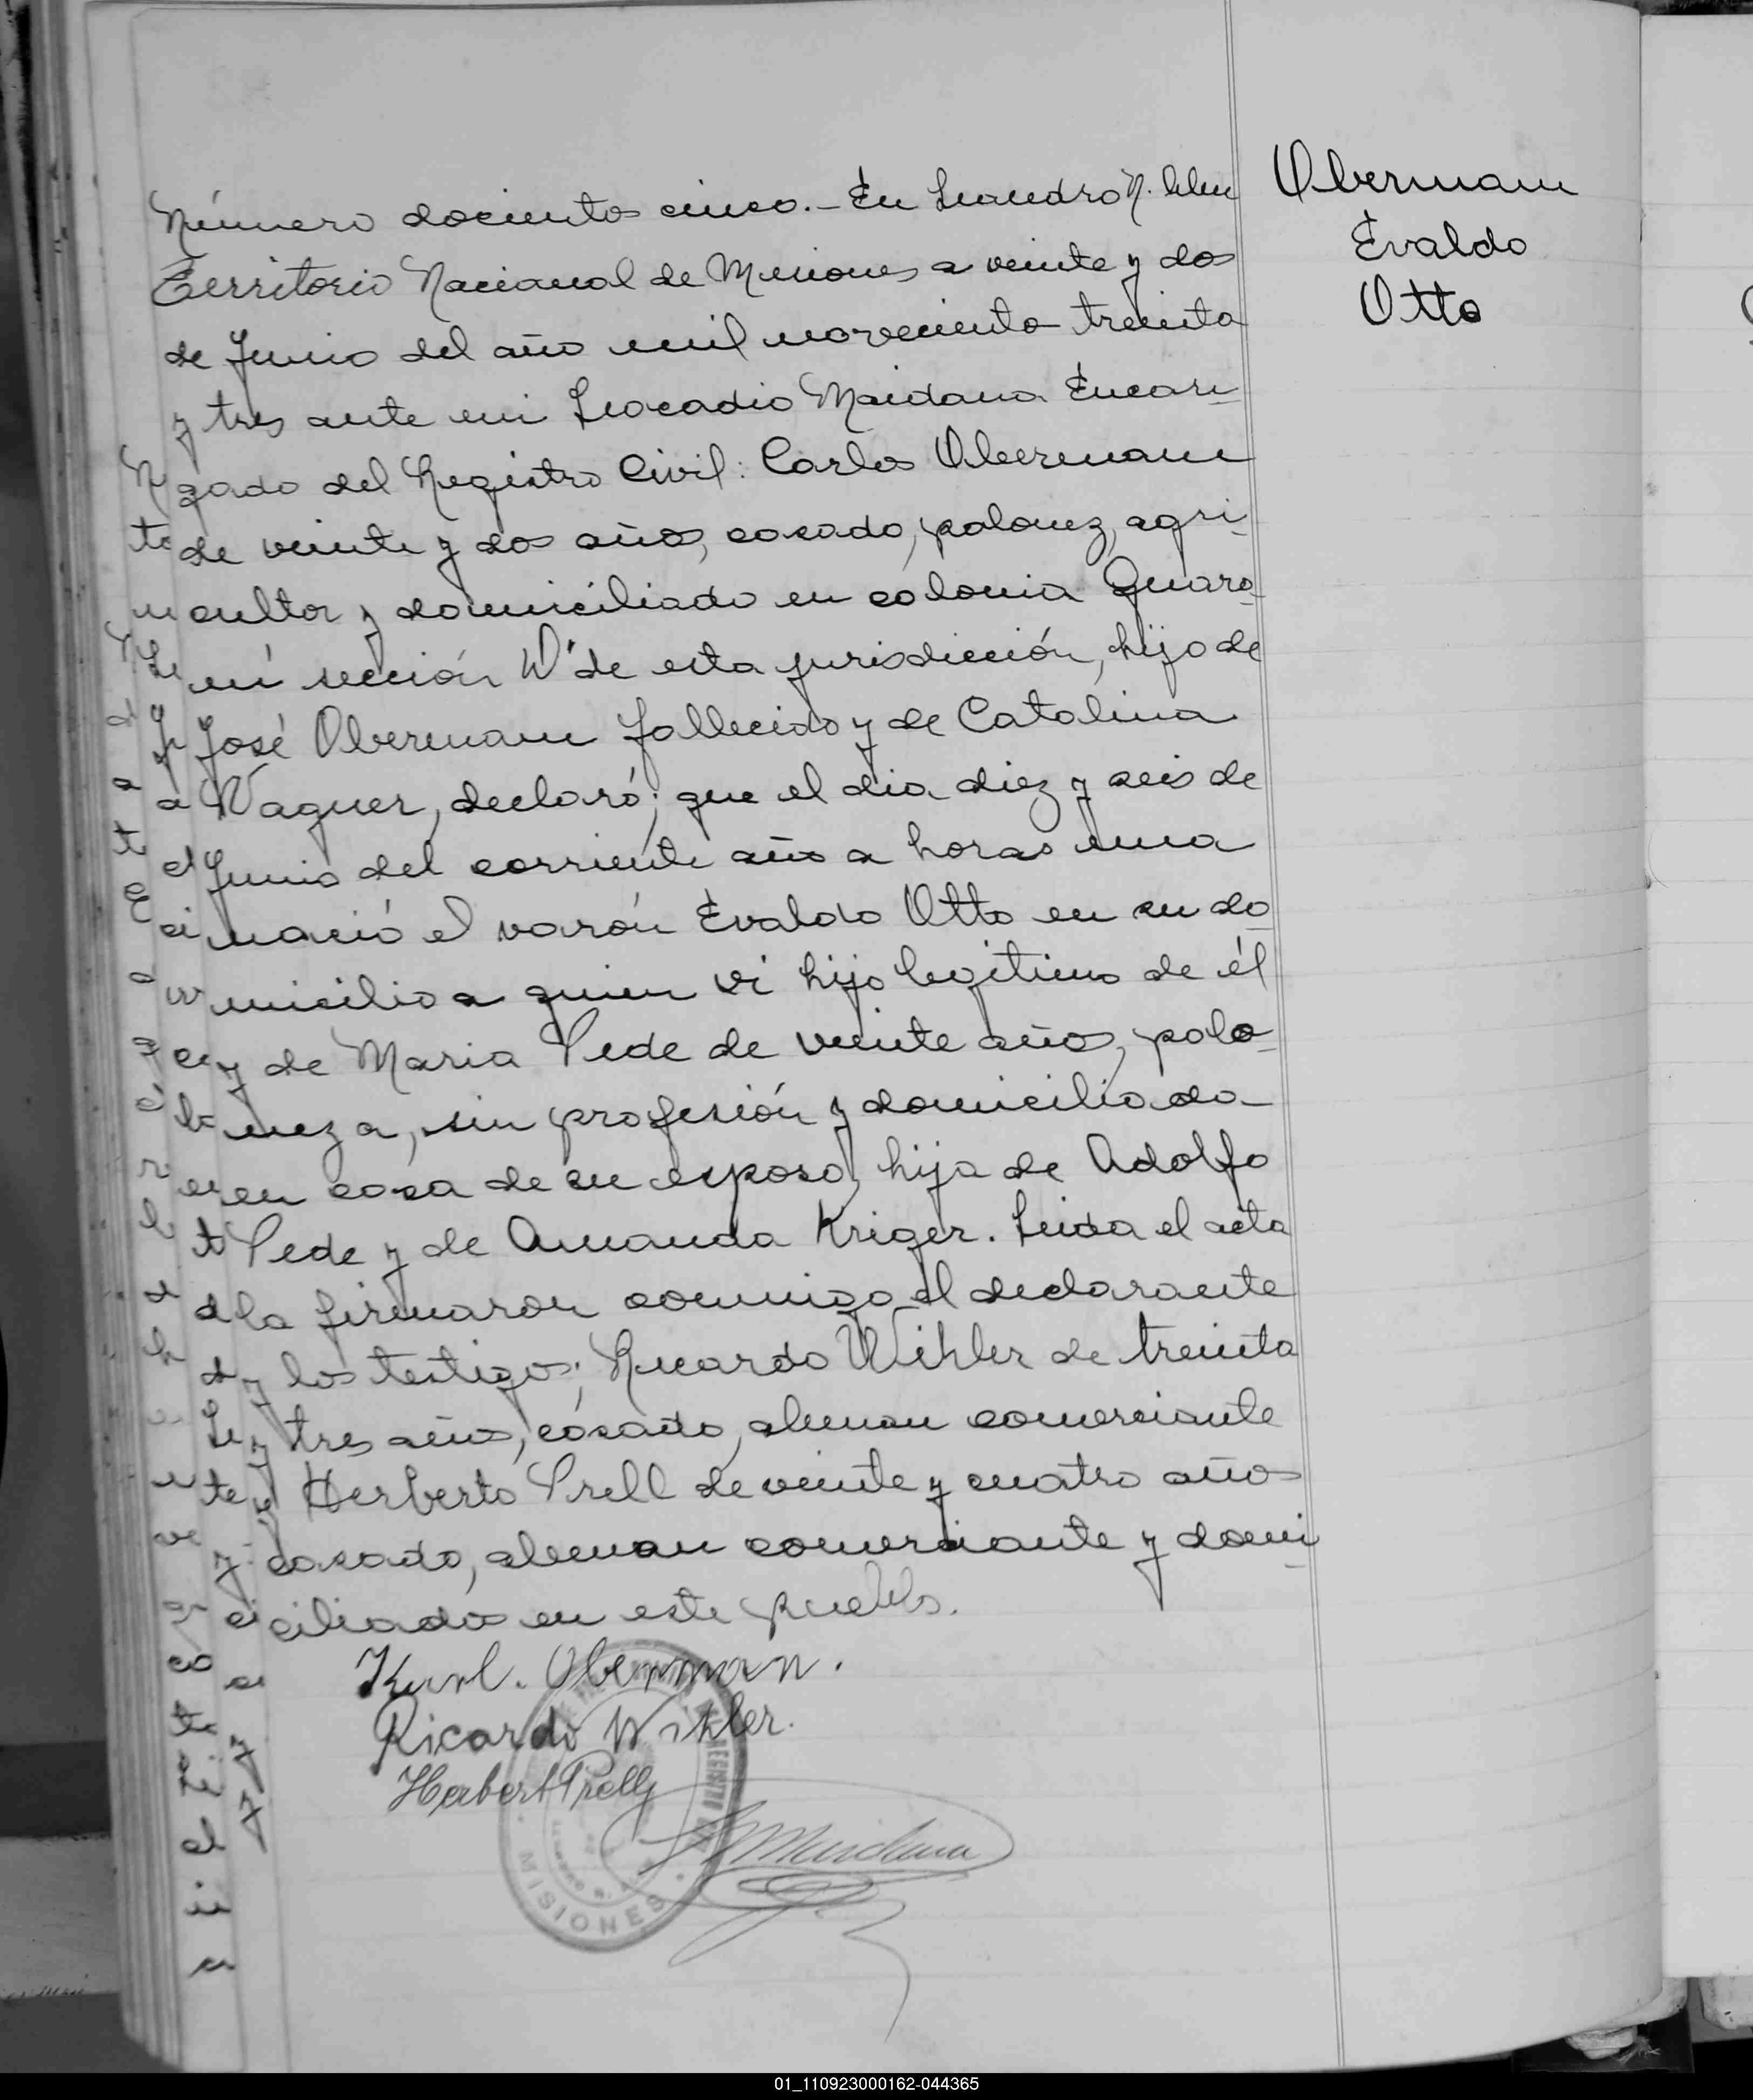 Número docientos cinco.- En Leandro N. Alem
Territorio Nacional de Misiones a veinte y dos
de Junio del año mil novecientos treinta
y tres ante mi Leocadio Maidana Encar-
gado del Registro Civil: Carlos Obermann
de veinte y dos años, casado, polonez, agri-
cultor y domiciliado en colonia Guara-
ní sección W de esta jurisdicción, hijo de
José Obermann fallecido y de Catalina
Wagner, declaró; que el dia diez y seis de
Junio del corriente año a horas una
nació el varón Evaldo Otto en su do-
micilio a quien vi hijo legitimo de él
y de Maria Pede de veinte años, polo-
neza, sin profesión y domiciliada
en casa de su esposo, hija de Adolfo
Pede y de Amanda Kriger. Leida el acta
la firmaron conmigo el declarante
y los testigos; Ricardo Wihler de treinta
y tres años, casado, aleman comerciante
y Herberto Prell de veinte y cuatro años
casado, aleman comerciante y domi-
ciliados en este pueblo.
Karl. Obermann.
Ricardo Wihler.
Herbert Prell
Maidana
MISIONES
Obermann
Evaldo
Otto
01_110923000162-044365